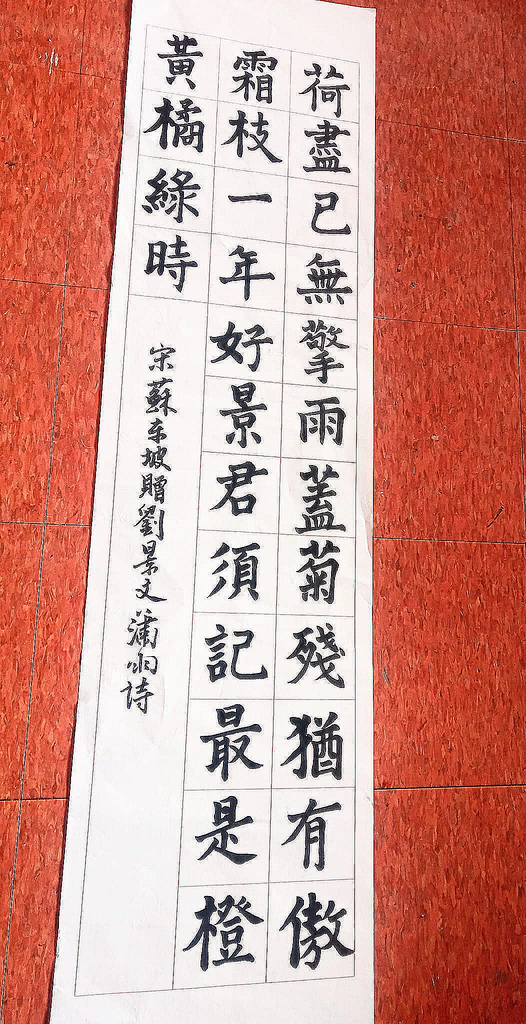 荷盡已無擎雨蓋菊殘猶有傲
霜枝一年好景君須記最是橙
黃橘綠時
宋蘇东坡贈劉景文 詩